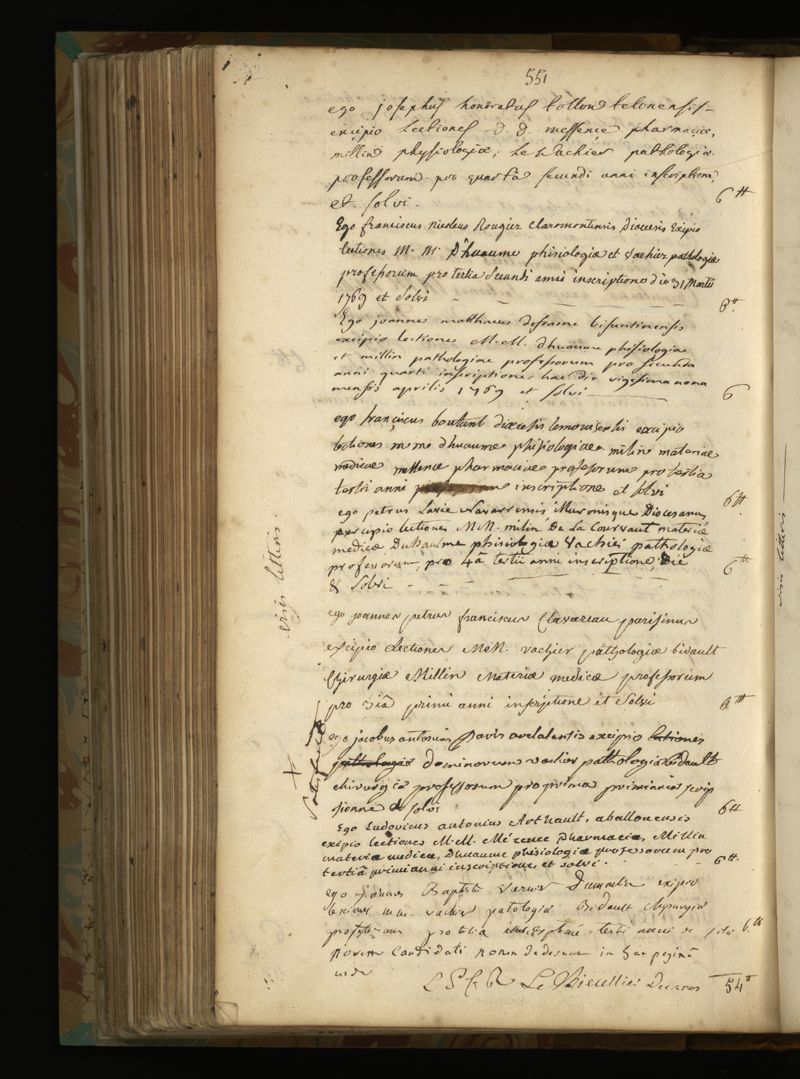 551
ego josephus honoratus tollond telonensis
excipio Lectiones d. d. messence pharmaciæ,
millin physiologiæ, Le Vachier pathologiæ
professorum pro quarta secundi anni inscriptione,
et solvi. 6 ₶
Ego franciscus nicolaus Rougier Claromontensis Diocesis Exipio
lectiones M. M. Dhuaume phisiologiæ et Vachier pathologiæ
professorum pro tertia secundi anni inscriptione die 31 Martii
1769 et solvi 6 ₶
Ego joannes matthaeus defoeme bisuntinensis
excipio lectiones M.M. dhuaume phisiologiae
et millin pathologiae professorum pro secunda
anni quarti inscriptione, hac die vigesima nona
mensis aprilis 1769 et solvi 6
ego franciscus boutant diœcesis lemovisensis excipio
lectiones m m dhuaume phisiologiae milin materiae
medicae messence pharmaciae professorum pro tertia
tertii anni inscriptione et solvi 6 ₶
ego petrus Larie Navarrensis Diocesanus,
percipio lectiones M.M. milin De La Courvaut materiæ
medicæ Duhaulme phisiologiæ Vachier pathologiæ
professorum, pro 4a tertii anni inscriptione, Die 6 ₶
& Solvi
ego joannes petrus franciscus Clavareau parisinus
excipio Lectiones M.M. vachier pathologiæ bidault
Chirurgiæ Millin Materiæ medicæ professorum
pro 3iâ primi anni inscriptione et Solvi 6 ₶
ego jacobus antonius Paris avelalensis excipio lectiones
pathologiæ dominorum vachier pathologiæ bidault
chirurgiæ professorum pro prima primi anni scrip
sionne et solvi 6 ₶
Ego Ludovicus antonius Arthault, aballonensis
exipio lectiones M.M. Mézence Pharmaciæ, Millin
materiæ medicæ, Dhuaume phisiologiæ professorum pro
tertiâ primi anni inscriptione, et solvi. 6 ₶
ego joannes Baptista Varnier Dummelin exipio
lectiones m.m. vachier patologiæ Bidault chyrurgiæ
professorum pro tertia tertii anni et solvi 6 ₶
novem Candidati nomen dederunt in hac paginâ
Decanus 54 ₶